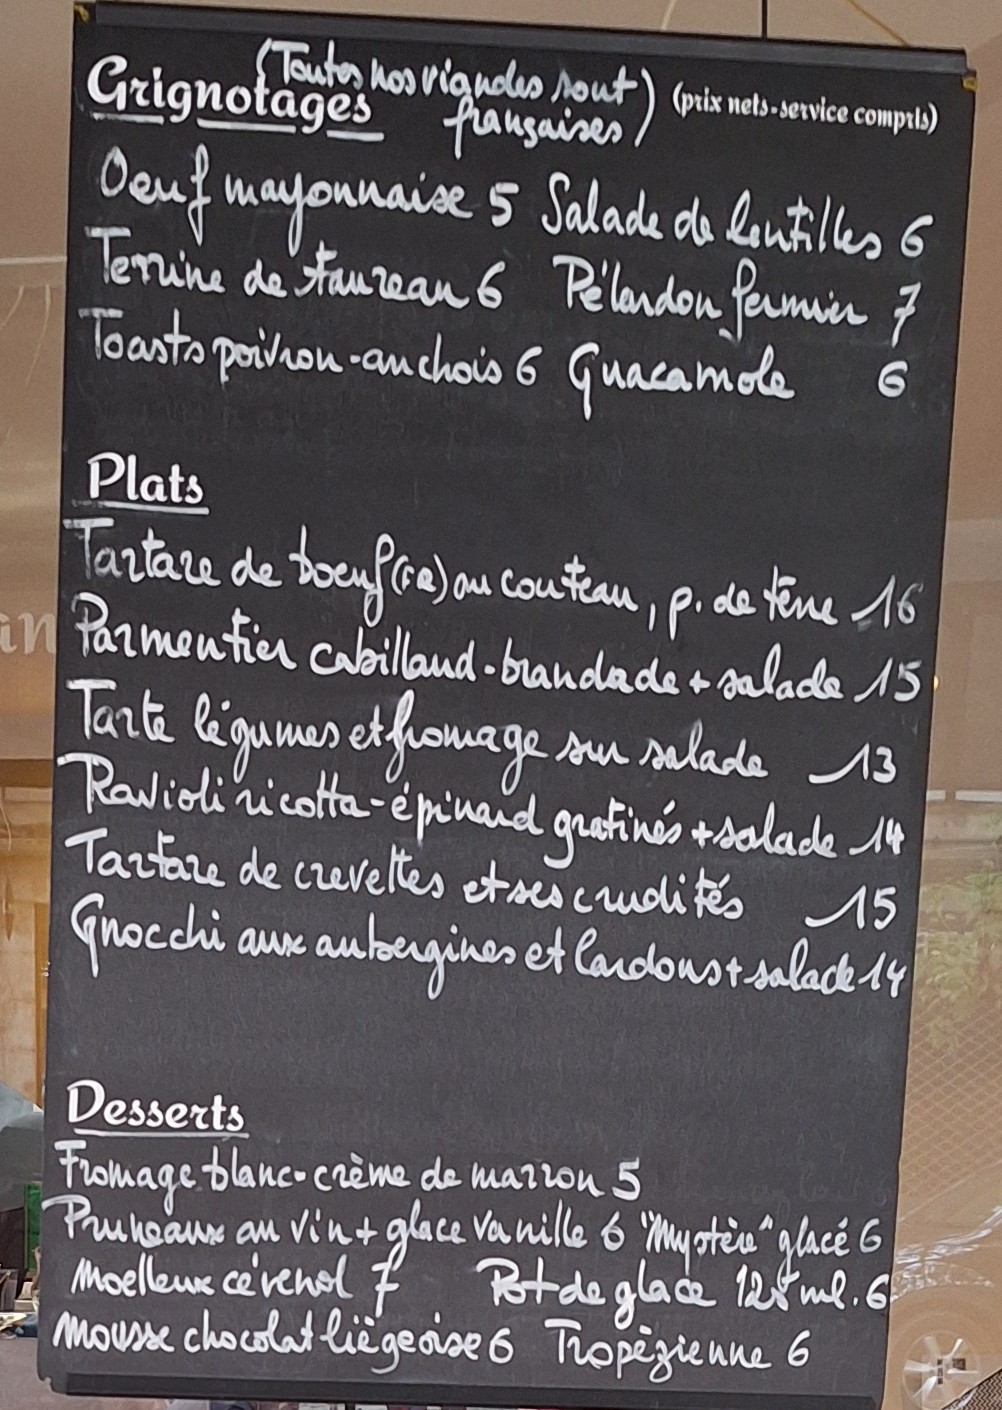 (Toutes nos viandes sont françaises)
Grignotages (prix nets-service compris)
Oeuf mayonnaise 5 Salade de lentilles 6
Terrine de taureau 6 Pélardon fermier 7
Toasts poivron-anchois 6 Guacamole 6
Plats
Tartare de boeuf (FR) au couteau, p. de terre 16
Parmentier cabillaud-brandade + salade 15
Tarte légumes et fromage sur salade 13
Ravioli ricotta-épinard gratinés + salade 14
Tartare de crevettes et ses crudités 15
Gnocchi aux aubergines et lardons + salade 14
Desserts
Fromage blanc-crème de marron 5
Pruneaux au vin + glace vanille 6 "Mystère" glacé 6
Moelleux cévenol 7 Pot de glace 125 ml. 6
Mousse chocolat liègeoise 6 Tropèzienne 6